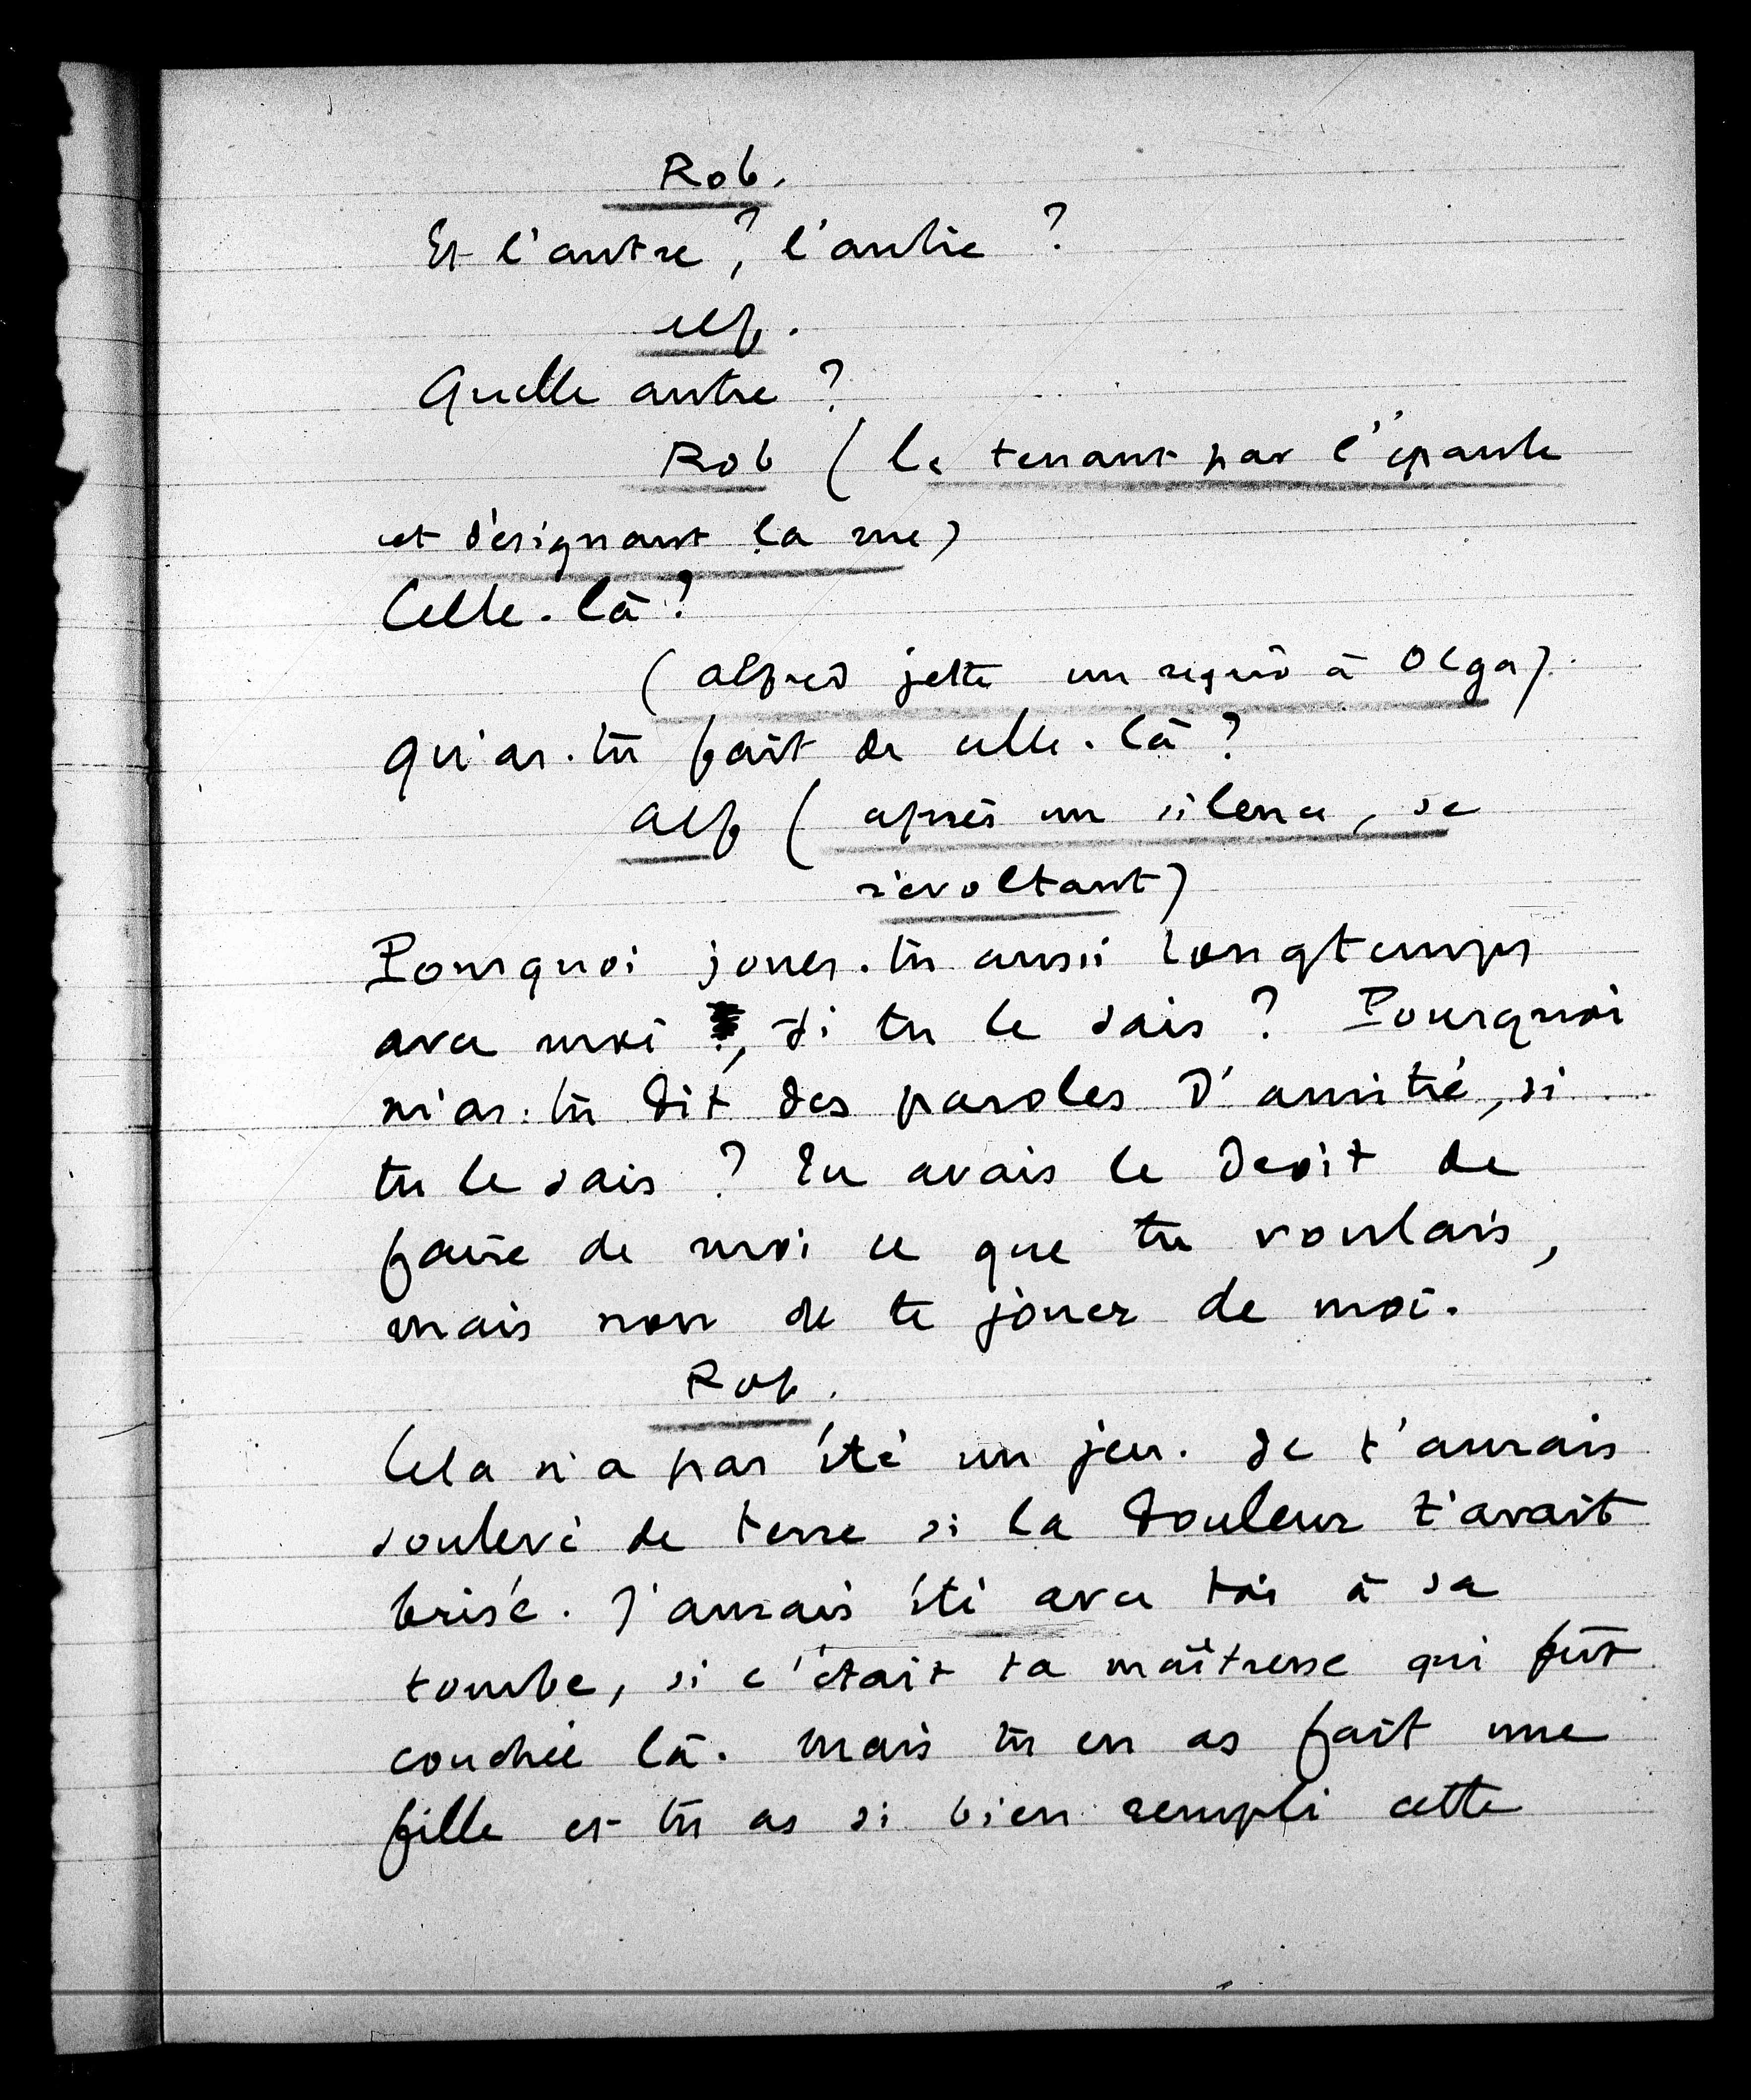 Rob.
Et l'autre ?, l'autre ?
Alf.
Quelle autre ?
Rob (le tenant par l'épaule
et désignant la rue)
Celle-là ?
(Alfred jette un regard à Olga).
Qu'as-tu fait de celle-là ?
Alf (après un silence, se
révoltant)
Pourquoi joues-tu aussi longtemps
avec moi, si tu le sais ? Pourquoi
m'as-tu dit des paroles d'amitié, si
tu le sais ? Tu avais le droit de
faire de moi ce que tu voulais,
mais non de te jouer de moi.
Rob.
Cela n'a pas été un jeu. Je t'aurais
soulevé de terre si la douleur t'avait
brisé. J'aurais été avec toi à sa
tombe, si c'était ta maîtresse qui fût
couchée là. Mais tu en as fait une
fille et tu as si bien rempli cette